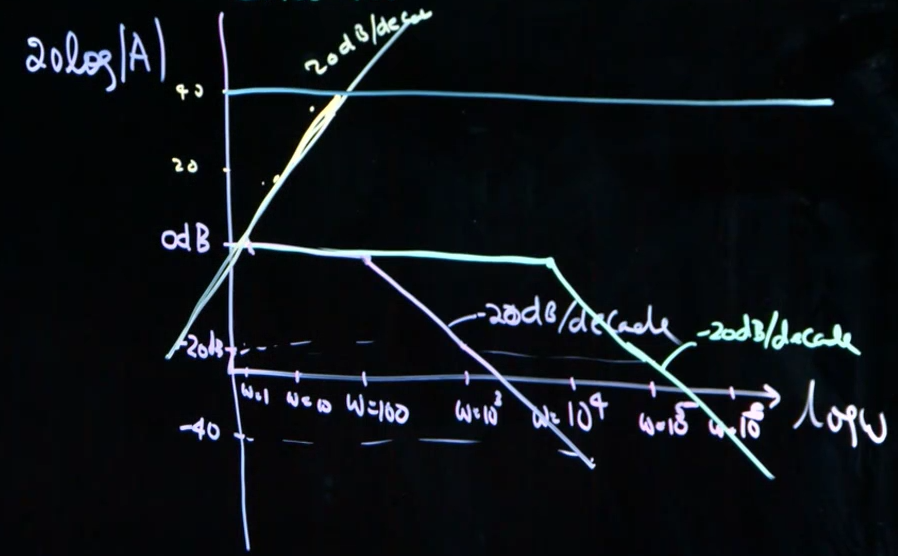 20log|A|
20dB/decac
40
20
0dB
-20dB/decade
-20dB/decade
-20dB
ω=1 ω=10 ω=100 ω=10³ ω=10⁴ ω=10⁵ ω=10⁶
logω
-40